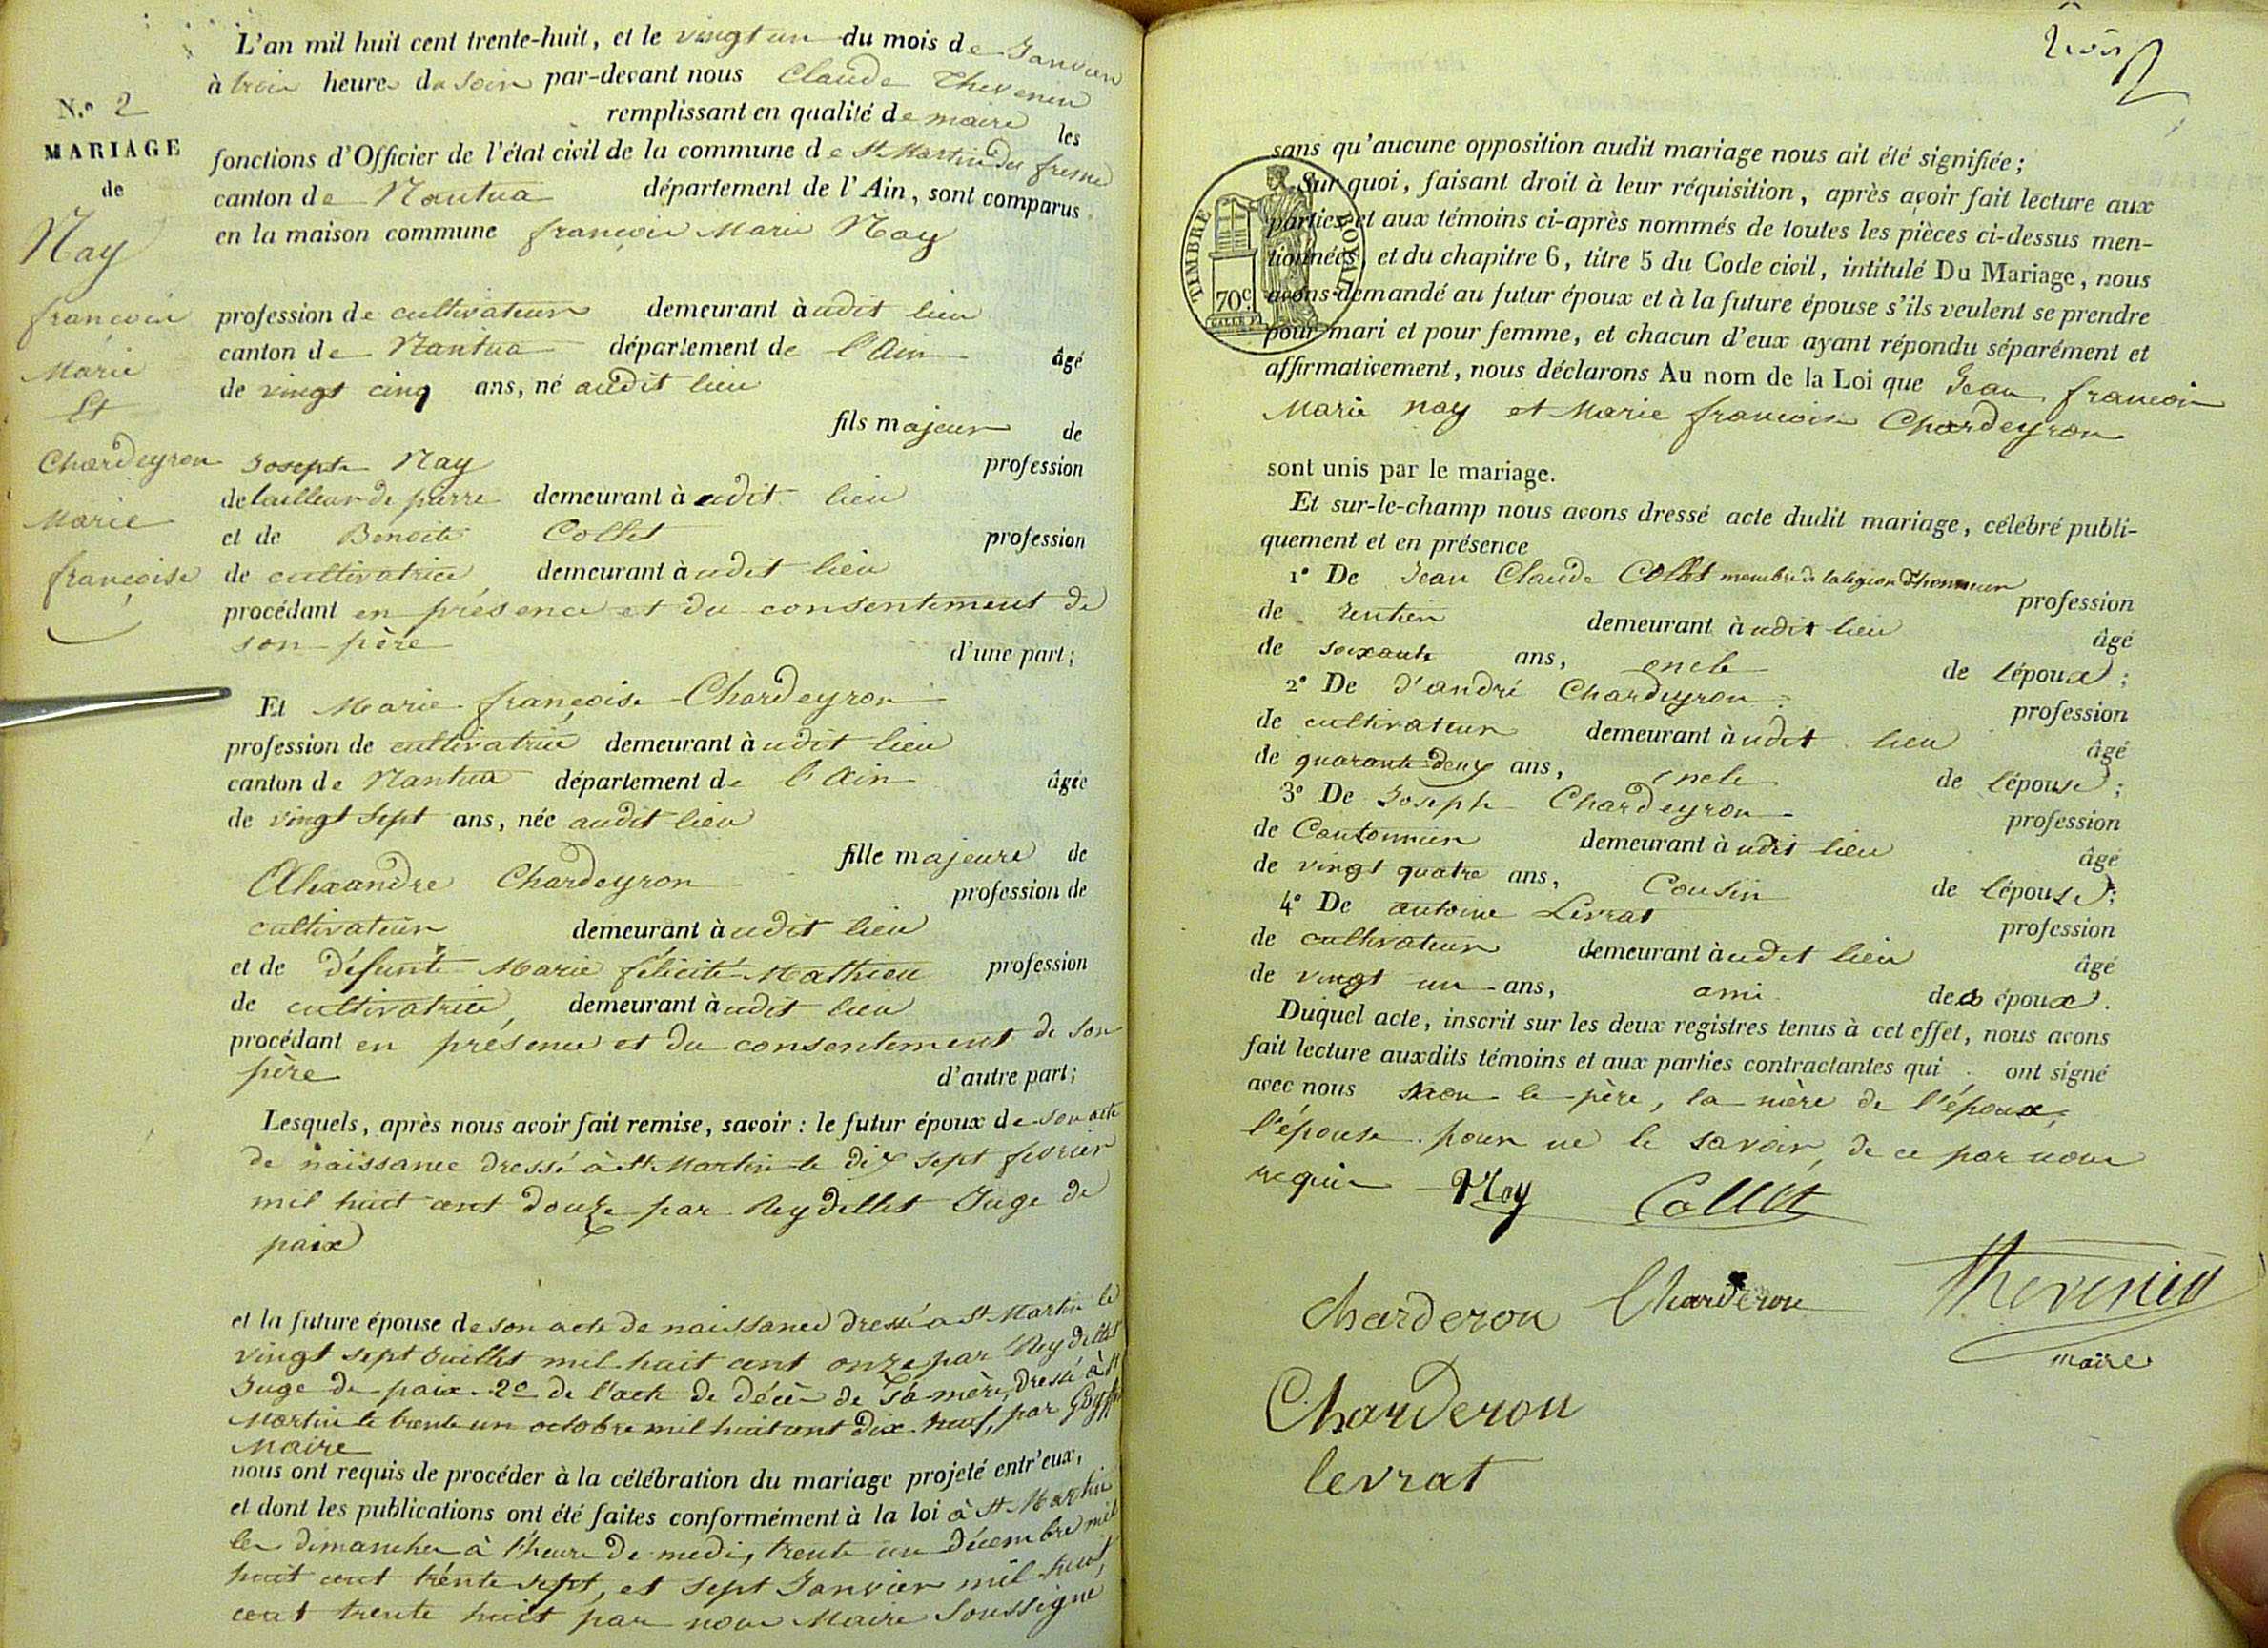 L'an mil huit cent trente-huit, et le vingt un du mois de Janvier
à trois heures du soir par-devant nous Claude Thevenin
remplissant en qualité de maire les
fonctions d'Officier de l'état civil de la commune de St Martin du fresne
canton de Nantua département de l'Ain, sont comparus
en la maison commune françois Marie Nay
N.º 2
MARIAGE
de
Nay
françois
Marie
Et
Chardeyron
Marie
françoise
profession de cultivateur demeurant à udit lieu
canton de Nantua département de l'Ain âgé
de vingt cinq ans, né audit lieu
fils majeur de
Joseph Nay profession
de tailleur de pierre demeurant à udit lieu
et de Benoite Collet profession
de cultivatrice demeurant à udit lieu
procédant en présence et du consentement de
son père d'une part;
Et Marie françoise Chardeyron
profession de cultivatrice demeurant à udit lieu
canton de Nantua département de l'Ain âgée
de vingt sept ans, née audit lieu
fille majeure de
Alexandre Chardeyron profession de
cultivateur demeurant à udit lieu
et de défunte Marie félicité Mathieu profession
de cultivatrice, demeurant à udit lieu
procédant en présence et du consentement de son
père d'autre part;
Lesquels, après nous avoir fait remise, savoir : le futur époux de son acte
de naissance dressé à St Martin le dix sept fevrier
mil huit cent douze par Reydellet Juge de
paix
et la future épouse de son acte de naissance dressé à St Martin le
vingt sept Juillet mil huit cent onze par Reydellet
Juge de paix. 2º de l'acte de décès de sa mère, dressé à St
Martin le trente un octobre mil huit cent dix neuf, par
Maire
nous ont requis de procéder à la célébration du mariage projeté entr'eux,
et dont les publications ont été faites conformément à la loi à St Martin
les dimanches à l'heure de midi, trente un Décembre mil
huit cent trente sept, et sept Janvier mil huit
cent trente huit par nous Maire Soussigné
sans qu'aucune opposition audit mariage nous ait été signifiée;
Sur quoi, faisant droit à leur réquisition, après avoir fait lecture aux
parties et aux témoins ci-après nommés de toutes les pièces ci-dessus men-
tionnées, et du chapitre 6, titre 5 du Code civil, intitulé Du Mariage, nous
avons demandé au futur époux et à la future épouse s'ils veulent se prendre
pour mari et pour femme, et chacun d'eux ayant répondu séparément et
affirmativement, nous déclarons Au nom de la Loi que Jean francois
Marie nay et Marie francoise Chardeyron
TIMBRE ROYAL
70c
sont unis par le mariage.
Et sur-le-champ nous avons dressé acte dudit mariage, célébré publi-
quement et en présence
1º De Jean Claude Collet membre de la légion d'honneur profession
de rentier demeurant à udit lieu âgé
de soixante ans, oncle de l'époux;
2º De d'andré Chardeyron profession
de cultivateur demeurant à udit lieu âgé
de quarante deux ans, oncle de l'épouse;
3º De Joseph Chardeyron profession
de Cantonnier demeurant à udit lieu âgé
de vingt quatre ans, Cousin de l'épouse;
4º De antoine Levrat profession
de cultivateur demeurant à udit lieu âgé
de vingt un ans, ami des époux.
Duquel acte, inscrit sur les deux registres tenus à cet effet, nous avons
fait lecture auxdits témoins et aux parties contractantes qui ont signé
avec nous non le père, la mère de l'époux,
l'épouse pour ne le savoir, de ce par nous
requis Nay Collet
Charderon Charderon Thevenin
maire
Charderon
levrat